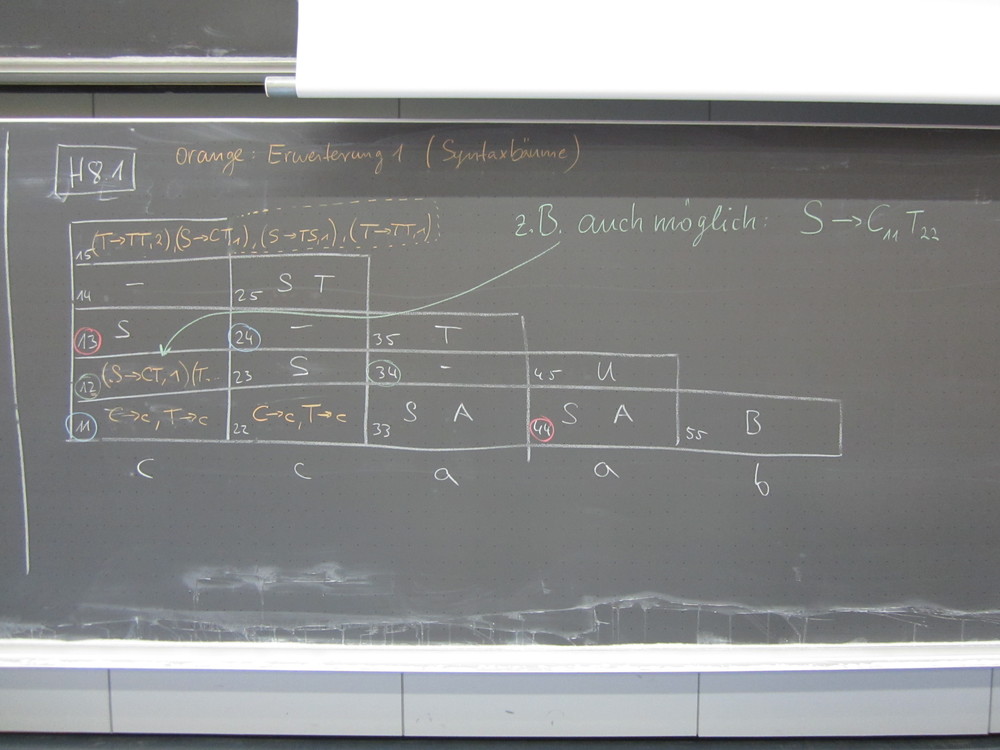 H8.1
Orange: Erweiterung 1 (Syntaxbäume)
z.B. auch möglich: S → C₁₁ T₂₂
15 (T→TT,2) (S→CT,1), (S→TS,1), (T→TT,1)
14 – 25 S T
13 S 24 – 35 T
12 (S→CT,1) (T... 23 S 34 - 45 U
11 C→c, T→c 22 C→c, T→c 33 S A 44 S A 55 B
c c a a b